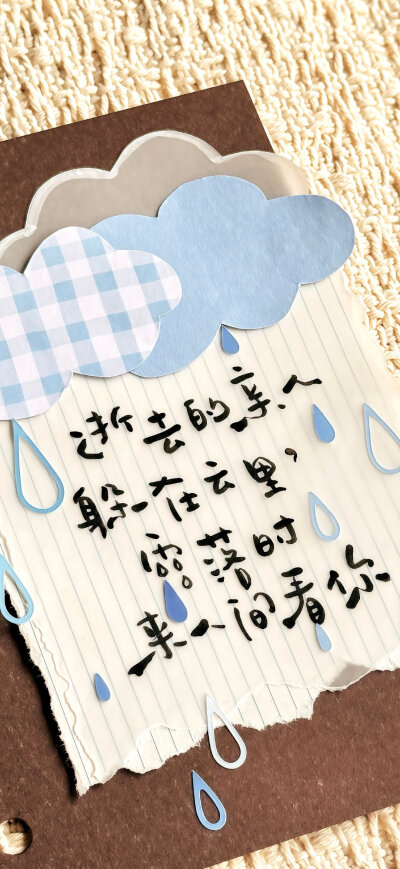 逝去的亲人
躲在云里，
雰落时
来人间看你